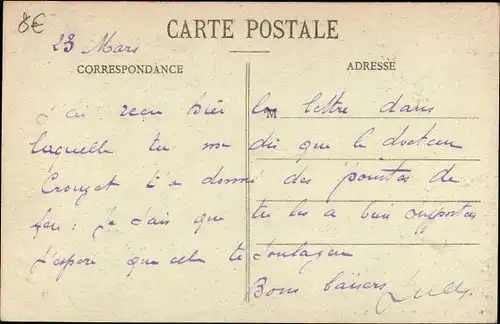 8€
CARTE POSTALE
23 Mars
CORRESPONDANCE
ADRESSE
M
J'ai reçu hier ta lettre dans
laquelle tu me dis que le docteur
Crouzet t'a donné des pointes de
feu : je sais que tu les a bien supportées
j'espère que cela te soulagera
Bons baisers